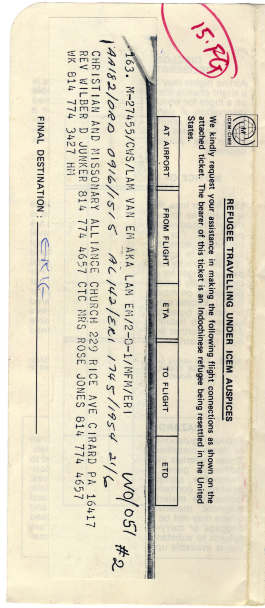 15. PG
ICEM-CIME
REFUGEE TRAVELLING UNDER ICEM AUSPICES
We kindly request your assistance in making the following flight connections as shown on the
attached ticket. The bearer of this ticket is an Indochinese refugee being resettled in the United
States.
AT AIRPORT FROM FLIGHT ETA TO FLIGHT ETD
WO/051 #2
163. M-27455/CWS/LAM VAN EM AKA LAM EM/2-0-1/MFM/ERI
AA182/ORD 0916/1515 AL142/ERI 1745/1954 21/6
CHRISTIAN AND MISSONARY ALLIANCE CHURCH 229 RICE AVE CIRARD PA 16417
REV WILBER D JUNKER 814 774 4657 CTC MRS ROSE JONES 814 774 4657
WK 814 774 3427 HM
FINAL DESTINATION :